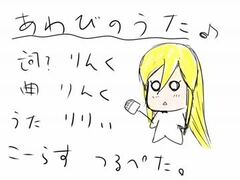 あわびのうた♪
詞? りんく
曲 りんく
うた りりぃ
こーらす つるぺた。